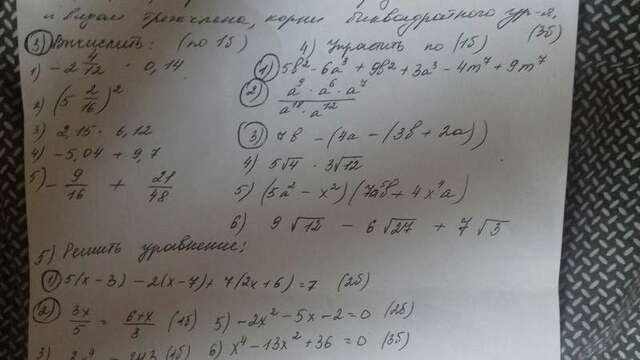 и видом трехчлена, корни биквадратного ур-я,
(3б)
3) Вычислить: (по 1б)
1) -2 4/12 · 0,14
2) (5 2/16)²
3) 2,15 · 6,12
4) -5,04 + 9,7
5) -9/16 + 21/48
4) Упростить по (1б)
1) 5b² - 6a³ + 9b² + 3a³ - 4m⁷ + 9m⁷
2) a⁹ · a⁶ · a⁷ / a¹⁸ · a¹²
3) 7b - (4a - (3b + 2a))
4) 5√4 · 3√12
5) (5a² - x²)(7a⁵b + 4x⁴a)
6) 9√12 - 6√27 + 7√3
5) Решить уравнение:
1) 5(x-3) - 2(x-7) + 7(2x+6) = 7 (2б)
2) 3x/5 = 6+x/3 (1б) 5) -2x² - 5x - 2 = 0 (2б)
3) (1б) 6) x⁴ - 13x² + 36 = 0 (3б)